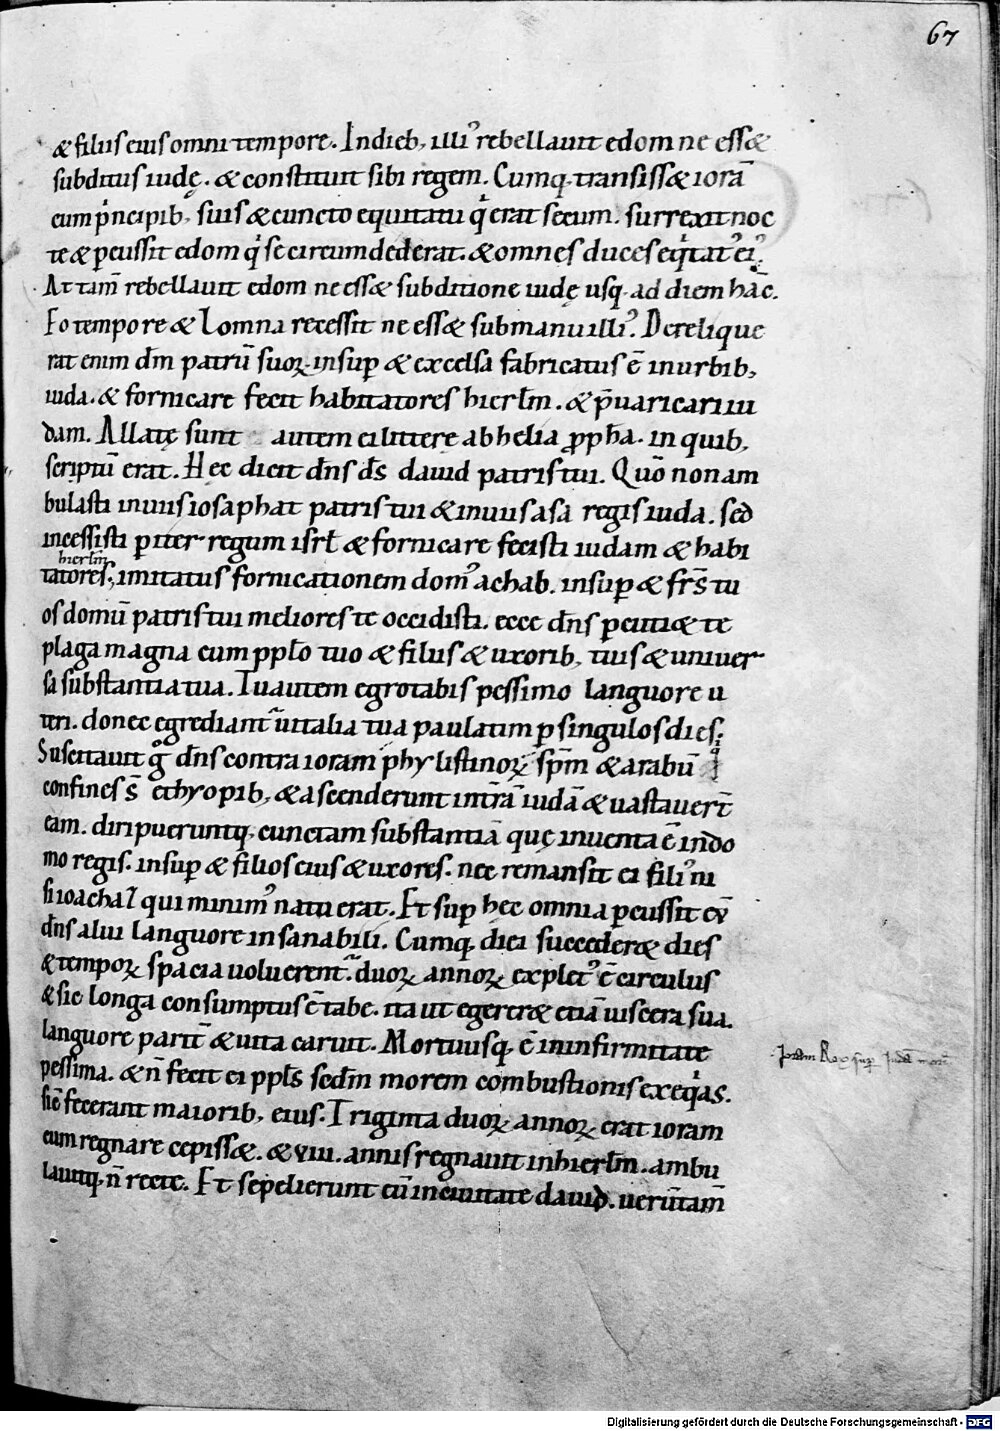 67
& filiis eius omni tempore. In dieb; illi᾽ rebellauit edom ne ess&
subditus iudę. & constituit sibi regem. Cumq; transiss& iorā
cum pⁱncipib; suis & cuncto equitatu qⁱ erat secum. surrexit noc
te & ꝑcussit edom qⁱ se circumdederat. & omnes duces eqⁱtat᾽ ei᾽.
Attam̄ rebellauit edom ne ess& sub ditione iudę usq; ad diem hāc.
Eo tempore & Lomna recessit ne ess& sub manu illi᾽. Derelique
rat enim dm̄ patrū suoꝝ. insuꝑ & excelsa fabricatus ē in urbib;
iuda. & fornicare fecit habitatores hierlm̄. & p̄uaricari iu
dam. Allatę sunt autem ei littere ab helia ꝓph̄a. in quib;
scriptū erat. Hec dicit dn̄s ds̄ dauid patris tui. Quō non am
bulasti in uiis iosaphat patris tui & in uiis asa regis iuda. sed
incessisti ꝑ iter regum isrł & fornicare fecisti iudam & habi
hierlm̄
tatores; imitatus fornicationem dom᾽ achab. insuꝑ & frs̄ tu
os domū patris tui meliores te occidisti. ecce dn̄s ꝑcuti& te
plaga magna cum ppło tuo & filiis & uxorib; tuis & uniuer
sa substantia tua. Tu autem egrotabis pessimo languore u
teri. donec egrediant᾽ uitalia tua paulatim ꝑ singulos dies.
Suscitauit gͦ dn̄s contra ioram phylistinoꝝ spm̄ & arabū qⁱ
confines s̄ ethyopib; & ascenderunt in t̄rā iudā & uastauert̄
eam. diripueruntq; cunctam substantiā quę inuenta ē in do
mo regis. insuꝑ & filios eius & uxores. nec remansit ei fili᾽ ni
si ioachaz qui minim᾽ natu erat. Et suꝑ hec omnia ꝑcussit eū
dn̄s alui languore insanabili. Cumq; diei succeder& dies
& tempoꝝ spacia uoluerent᾽. duoꝝ annoꝝ explet᾽ ē circulus
& sic longa consumptus ē tabe. ita ut egerer& etiā uiscera sua.
languore parit̄ & uita caruit. Mortuusq; ē in infirmitate
pessima. & n̄ fecit ei ppłs scdm̄ morem combustionis exeqⁱas.
sic̄ fecerant maiorib; eius. Triginta duoꝝ annoꝝ erat ioram
cum regnare cepiss&. & VIII. annis regnauit in hierlm̄. ambu
lauitq; n̄ recte. Et sepelierunt eū in ciuitate dauid. uerūtam̄
Joram Rex suꝑ Judā
Digitalisierung gefördert durch die Deutsche Forschungsgemeinschaft - DFG